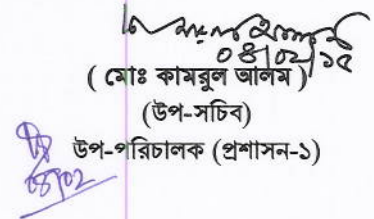 ০৪/০২/১৫
( মোঃ কামরুল আলম )
(উপ-সচিব)
উপ-পরিচালক (প্রশাসন-১)
০৪/০২